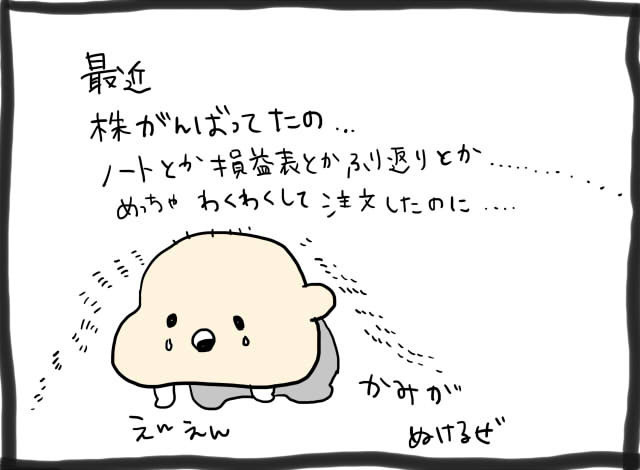 最近
株がんばってたの...
ノートとか損益表とかふり返りとか..........
めっちゃ わくわくして 注文したのに ....
えーん えん
かみが
ぬけるぜ